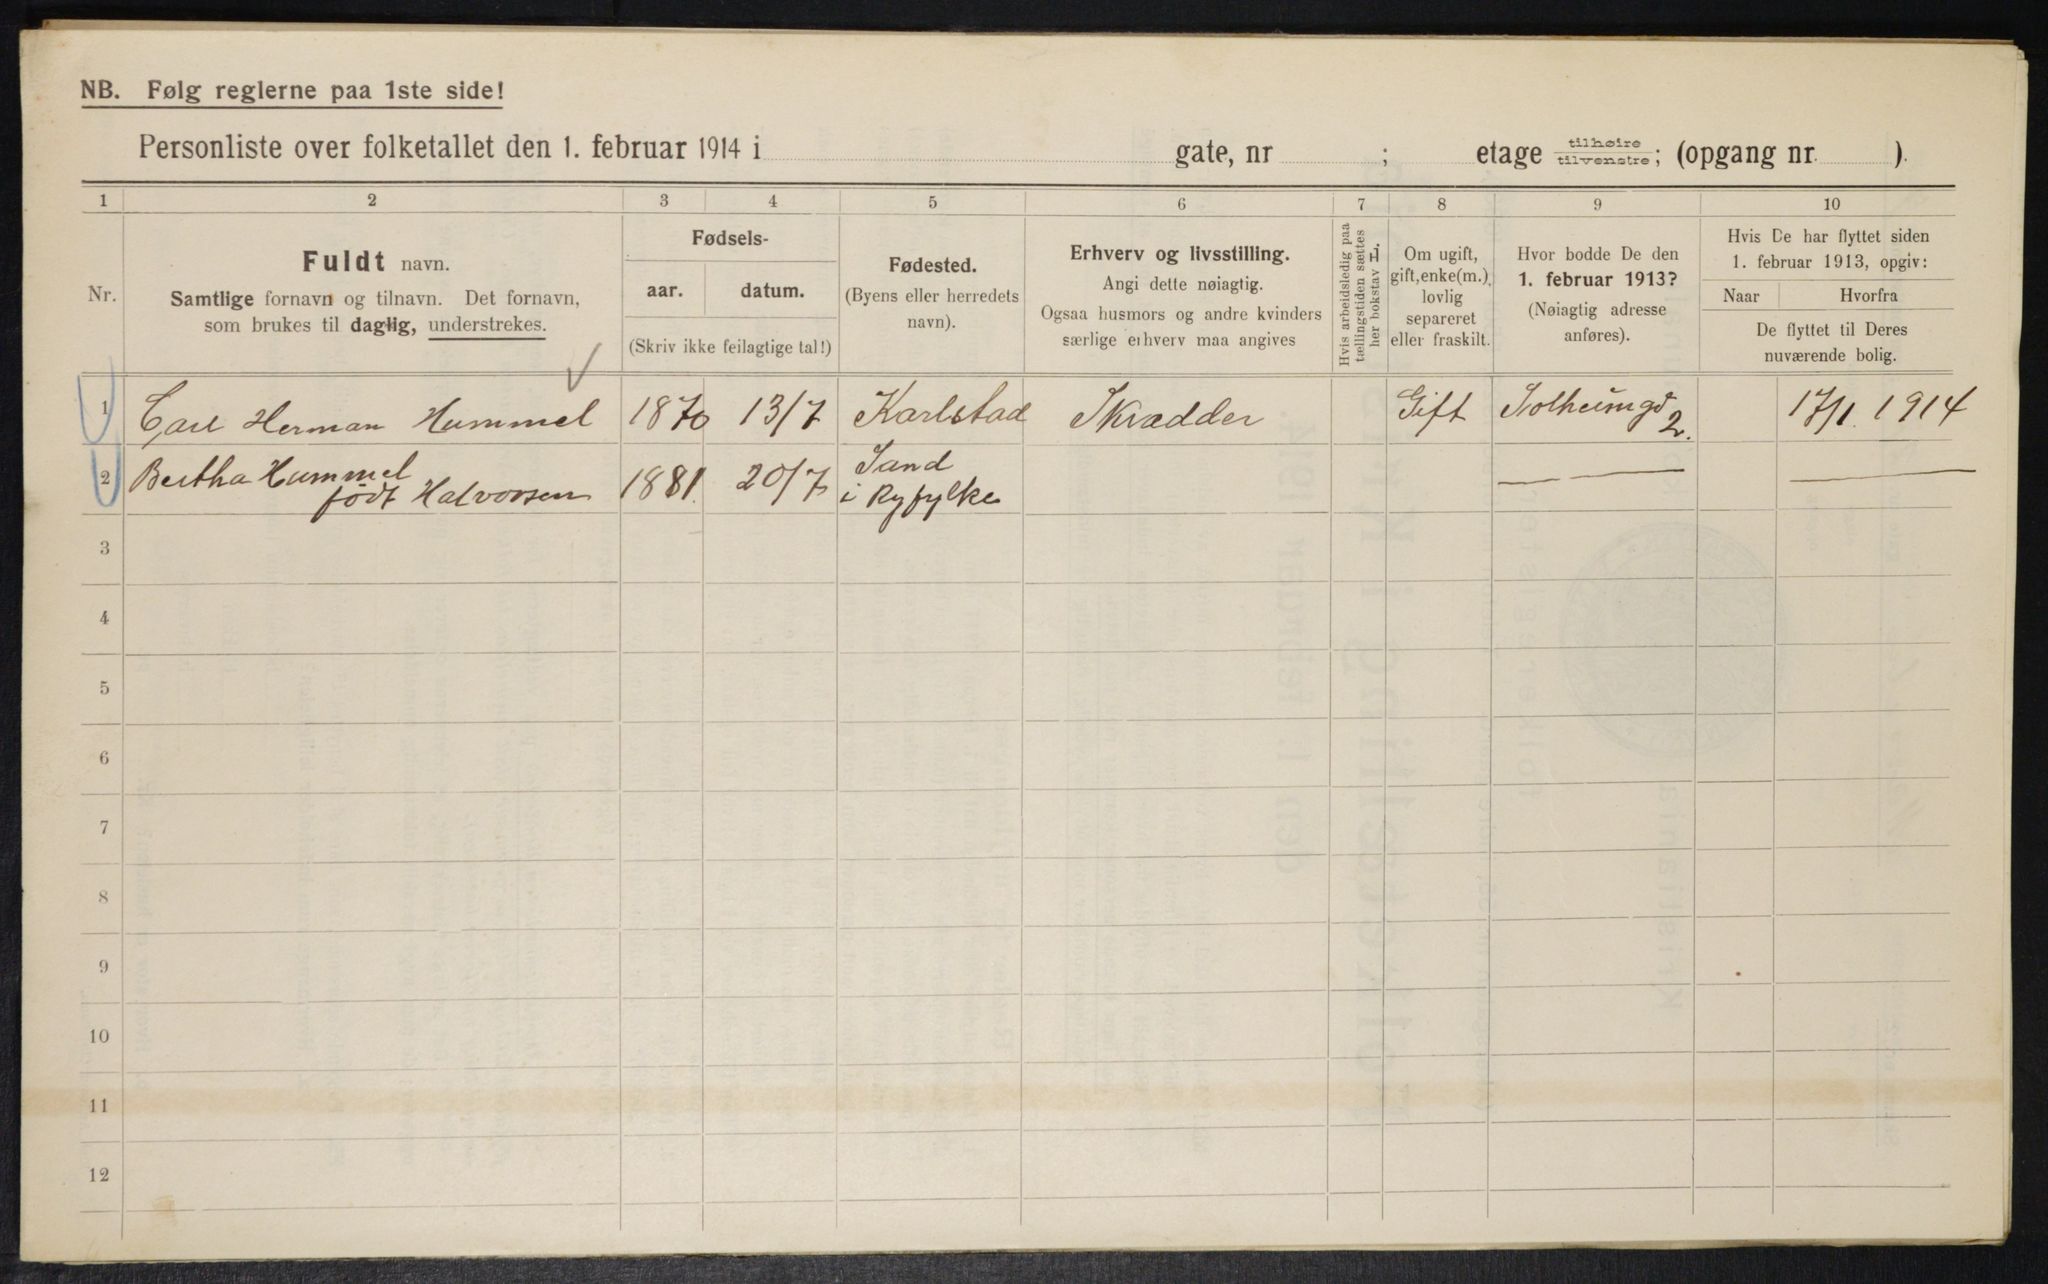 NB. Følg reglerne paa 1ste side!
Personliste over folketallet den 1. februar 1914 i gate, nr ; etage tilhøire tilvenstre; (opgang nr. ).
1 2 3 4 5 6 7 8 9 10
Nr.
Fuldt navn.
Samtlige fornavn og tilnavn. Det fornavn,
som brukes til daglig, understrekes.
Fødsels-
aar. datum.
(Skriv ikke feilagtige tal!)
Fødested.
(Byens eller herredets
navn).
Erhverv og livsstilling.
Angi dette nøiagtig.
Ogsaa husmors og andre kvinders
særlige erhverv maa angives
Hvis arbeidsledig paa
tællingstiden sættes
her bokstav L.
Om ugift,
gift, enke(m.),
lovlig
separeret
eller fraskilt.
Hvor bodde De den
1. februar 1913?
(Nøiagtig adresse
anføres).
Hvis De har flyttet siden
1. februar 1913, opgiv:
Naar Hvorfra
De flyttet til Deres
nuværende bolig.
1 Carl Herman Hummel 1870 13/7 Karlstad Skrædder Gift Solheimgd 2. 17/1. 1914
2 Bertha Hummel
født Halvorsen 1881. 20/7 Sand
i Ryfylke — — —
3
4
5
6
7
8
9
10
11
12